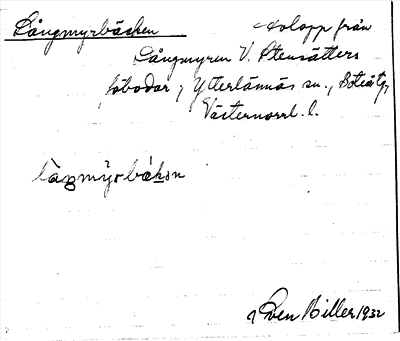 Långmyrbäcken Avlopp från
Långmyren V. Stensätters
fäbodar, Ytterlännäs sn., Boteå tg,
Västernorrl. l.
Sven Biller 1932